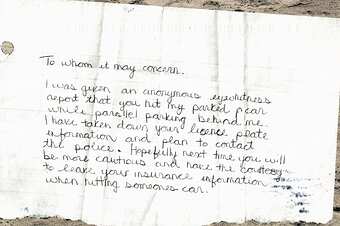 To whom it may concern.
I was given an anonymous eyewitness
report that you hit my parked car
while parallel parking behind me.
I have taken down your licence plate
information and plan to contact
the police. Hopefully next time you will
be more cautious and have the courtesy
to leave your insurance information
when hitting someones car.